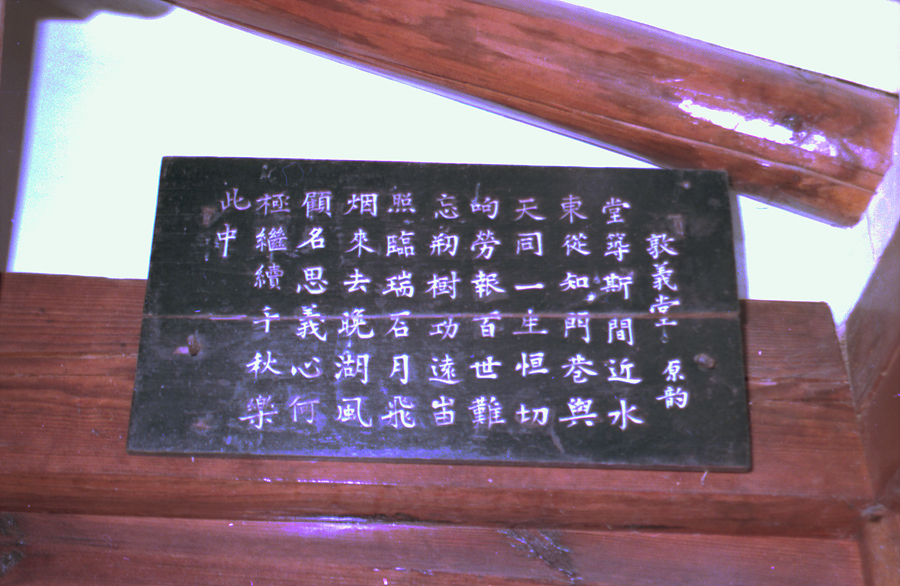 敦義堂 原韵
堂斯間近水
東從知門巷與
天同一生恒切
劬勞報百世難
忘剏樹功遠峀
照臨瑞石月飛
烟來去晚湖風
顧名思義心何
極繼續千秋樂
此中